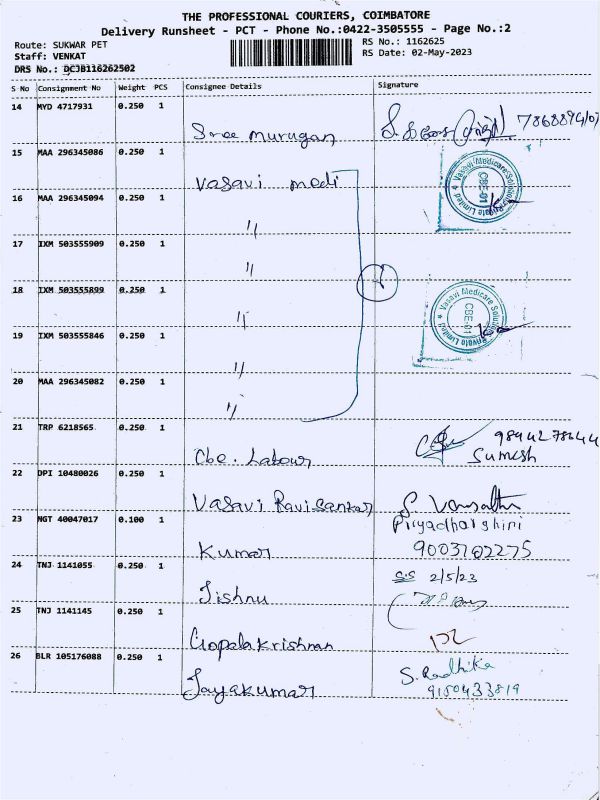 THE PROFESSIONAL COURIERS, COIMBATORE
Delivery Runsheet - PCT - Phone No.:0422-3505555 - Page No.:2
Route: SUKWAR PET
RS No.: 1162625
Staff: VENKAT
RS Date: 02-May-2023
DRS No.: DCJB116262502
S No Consignment No Weight PCS Consignee Details Signature
14 MYD 4717931 0.250 1
Sree murugan
15 MAA 296345086 0.250 1
Vasavi medi
Vasavi Medicare Solutions Private Limited
CBE-01
16 MAA 296345094 0.250 1
"
17 IXM 503555909 0.250 1
"
18 IXM 503555899 0.250 1
"
Vasavi Medicare Solutions Private Limited
CBE-01
19 IXM 503555846 0.250 1
"
20 MAA 296345082 0.250 1
"
21 TRP 6218565 0.250 1
Cbe. Labour
Sumesh
22 DPI 10480026 0.250 1
Vasavi Ravisankar
23 NGT 40047017 0.100 1
Priyadharshini
Kumar
9003702275
24 TNJ 1141055 0.250 1
2/5/23
Jishnu
25 TNJ 1141145 0.250 1
Gopalakrishnan
26 BLR 105176088 0.250 1
S. Radhika
Jayakumar
9150433819